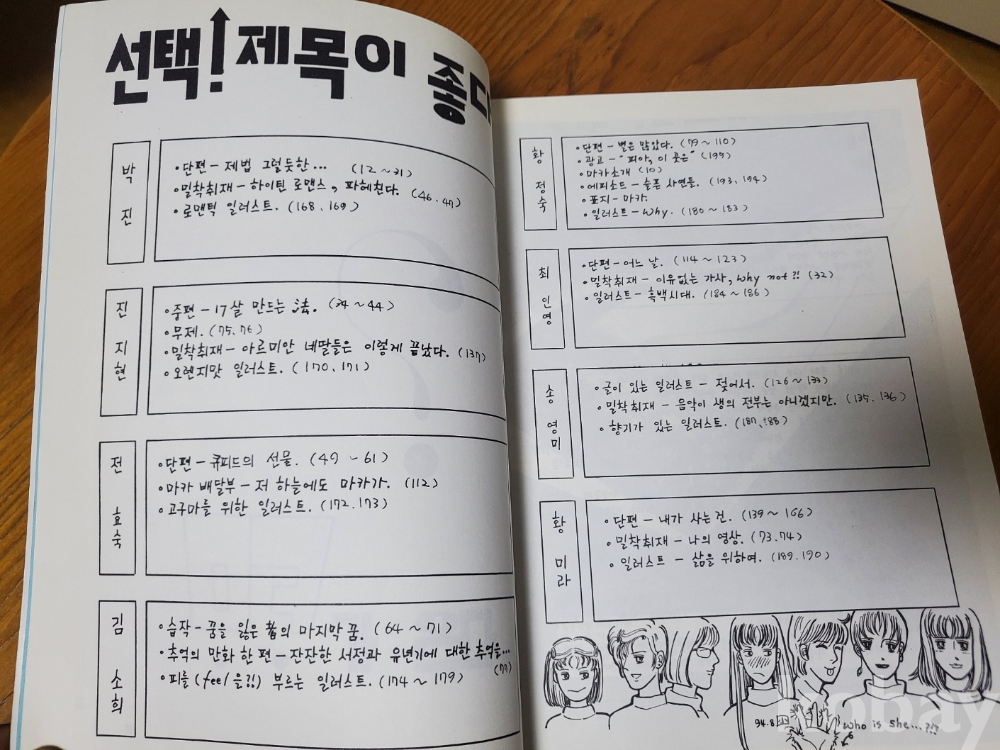 선택! 제목이 좋다
박진
·단편-제법 그럴듯한... (12~31)
·밀착취재-하이틴 로맨스, 파헤친다. (46.47)
·로맨틱 일러스트. (168.169)
진지현
·중편-17살 만드는 法. (34~44)
·무제. (75.76)
·밀착취재-아르미안 네딸들은 이렇게 끝났다. (137)
·오렌지맛 일러스트. (170.171)
전효숙
·단편-큐피드의 선물. (49~61)
·마카 배달부-저 하늘에도 마카가. (112)
·고구마를 위한 일러스트. (172.173)
김소희
·습작-꿈을 잃은 者의 마지막 꿈. (64~71)
·추억의 만화 한 편-잔잔한 서정과 유년기에 대한 추억을...
·피를 (feel/을김) 부르는 일러스트. (174~179)
황정숙
·단편-별은 많았다. (79~110)
·광고-"피아, 이 곳은" (199)
·마카소개 (10)
·에피소드-슬픈 사연들. (193.194)
·표지-마카.
·일러스트-Why. (180~183)
최인영
·단편-어느 날. (114~123)
·밀착취재-이유없는 가사, Why not?! (32)
·일러스트-흑백시대. (184~186)
송영미
·글이 있는 일러스트-젖어서. (126~133)
·밀착취재-음악이 생의 전부는 아니겠지만. (135.136)
·향기가 있는 일러스트. (187.188)
황미라
·단편-내가 사는 건. (139~166)
·밀착취재-나의 영상. (73.74)
·일러스트-삶을 위하여. (189.190)
94.8.
who is she...?!?
kobay